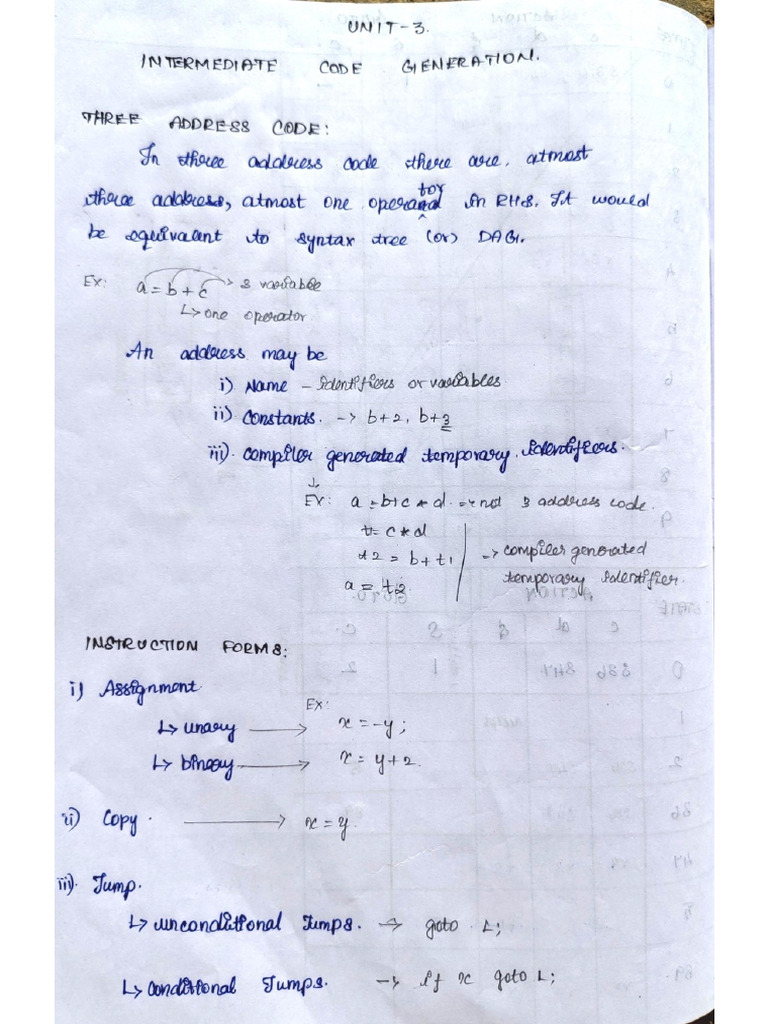 UNIT-3.
INTERMEDIATE CODE GENERATION.
THREE ADDRESS CODE:
In three address code there are, atmost
three address, atmost one operator in RHS. It would
be equivalent to syntax tree (or) DAG.
Ex: a = b + c -> 3 variable
↳ one operator
An address may be
i) Name - identifiers or variables
ii) Constants. -> b+2, b+3
iii). compiler generated temporary identifiers.
↓
Ex: a = b+c * d. => not 3 address code.
t = c * d
t2 = b + t1 -> compiler generated
a = t2 temporary identifier.
INSTRUCTION FORMS:
i) Assignment
Ex:
↳ unary ⟶ x = -y;
↳ binary ⟶ x = y+2.
ii) Copy. ⟶ x = y.
iii). Jump.
↳ unconditional Jumps. -> goto L;
↳ conditional Jumps. -> if x goto L;